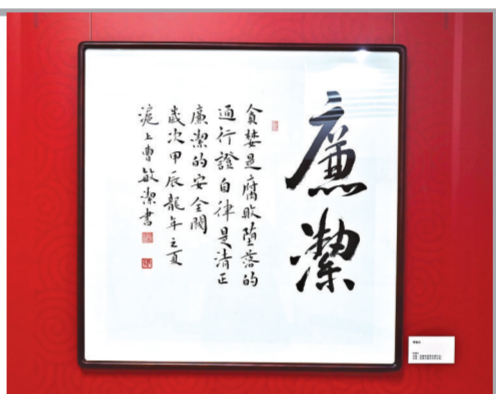 廉潔
貪婪是腐敗墮落的
通行證自律是清正
廉潔的安全閥
歲次甲辰龍年之夏
滬上曹敏潔書